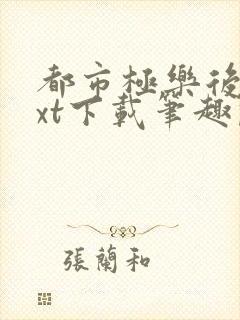 都市極樂後
xt下載筆趣
張蘭和